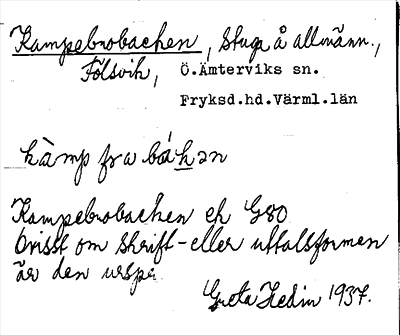 Kampebrobacken, stuga å allmänn.,
Fölsvik, Ö.Ämterviks sn.
Fryksd.hd.Värml.län
kàmp fra bákan
Kampebrobacken ek G80
Ovisst om skrift- eller uttalsformen
är den urspr
Greta Hedin 1937.